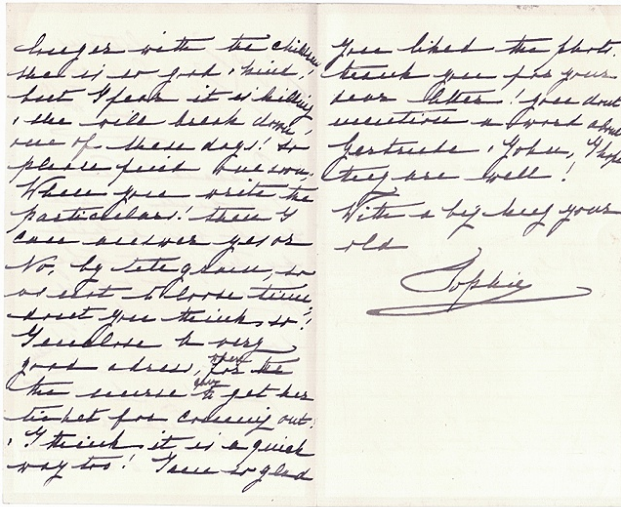 longer with the children
she is so good & kind!
but I fear it is killing
& she will break down
one of these days! So
please find one soon.
When you write the
particulars! then I
can answer yes or
No, by telegram, so
as not to loose time,
dont you think so?!
I enclose a very
good adress, for the
the nurse to get her
ticket for coming out!
& I think it is a quick
way too! I am so glad
You liked the photo.
thank you for your
dear letter! you dont
mention a word about
Gertrude & John, I hope
they are well!
With a big hug your
old
Sophie